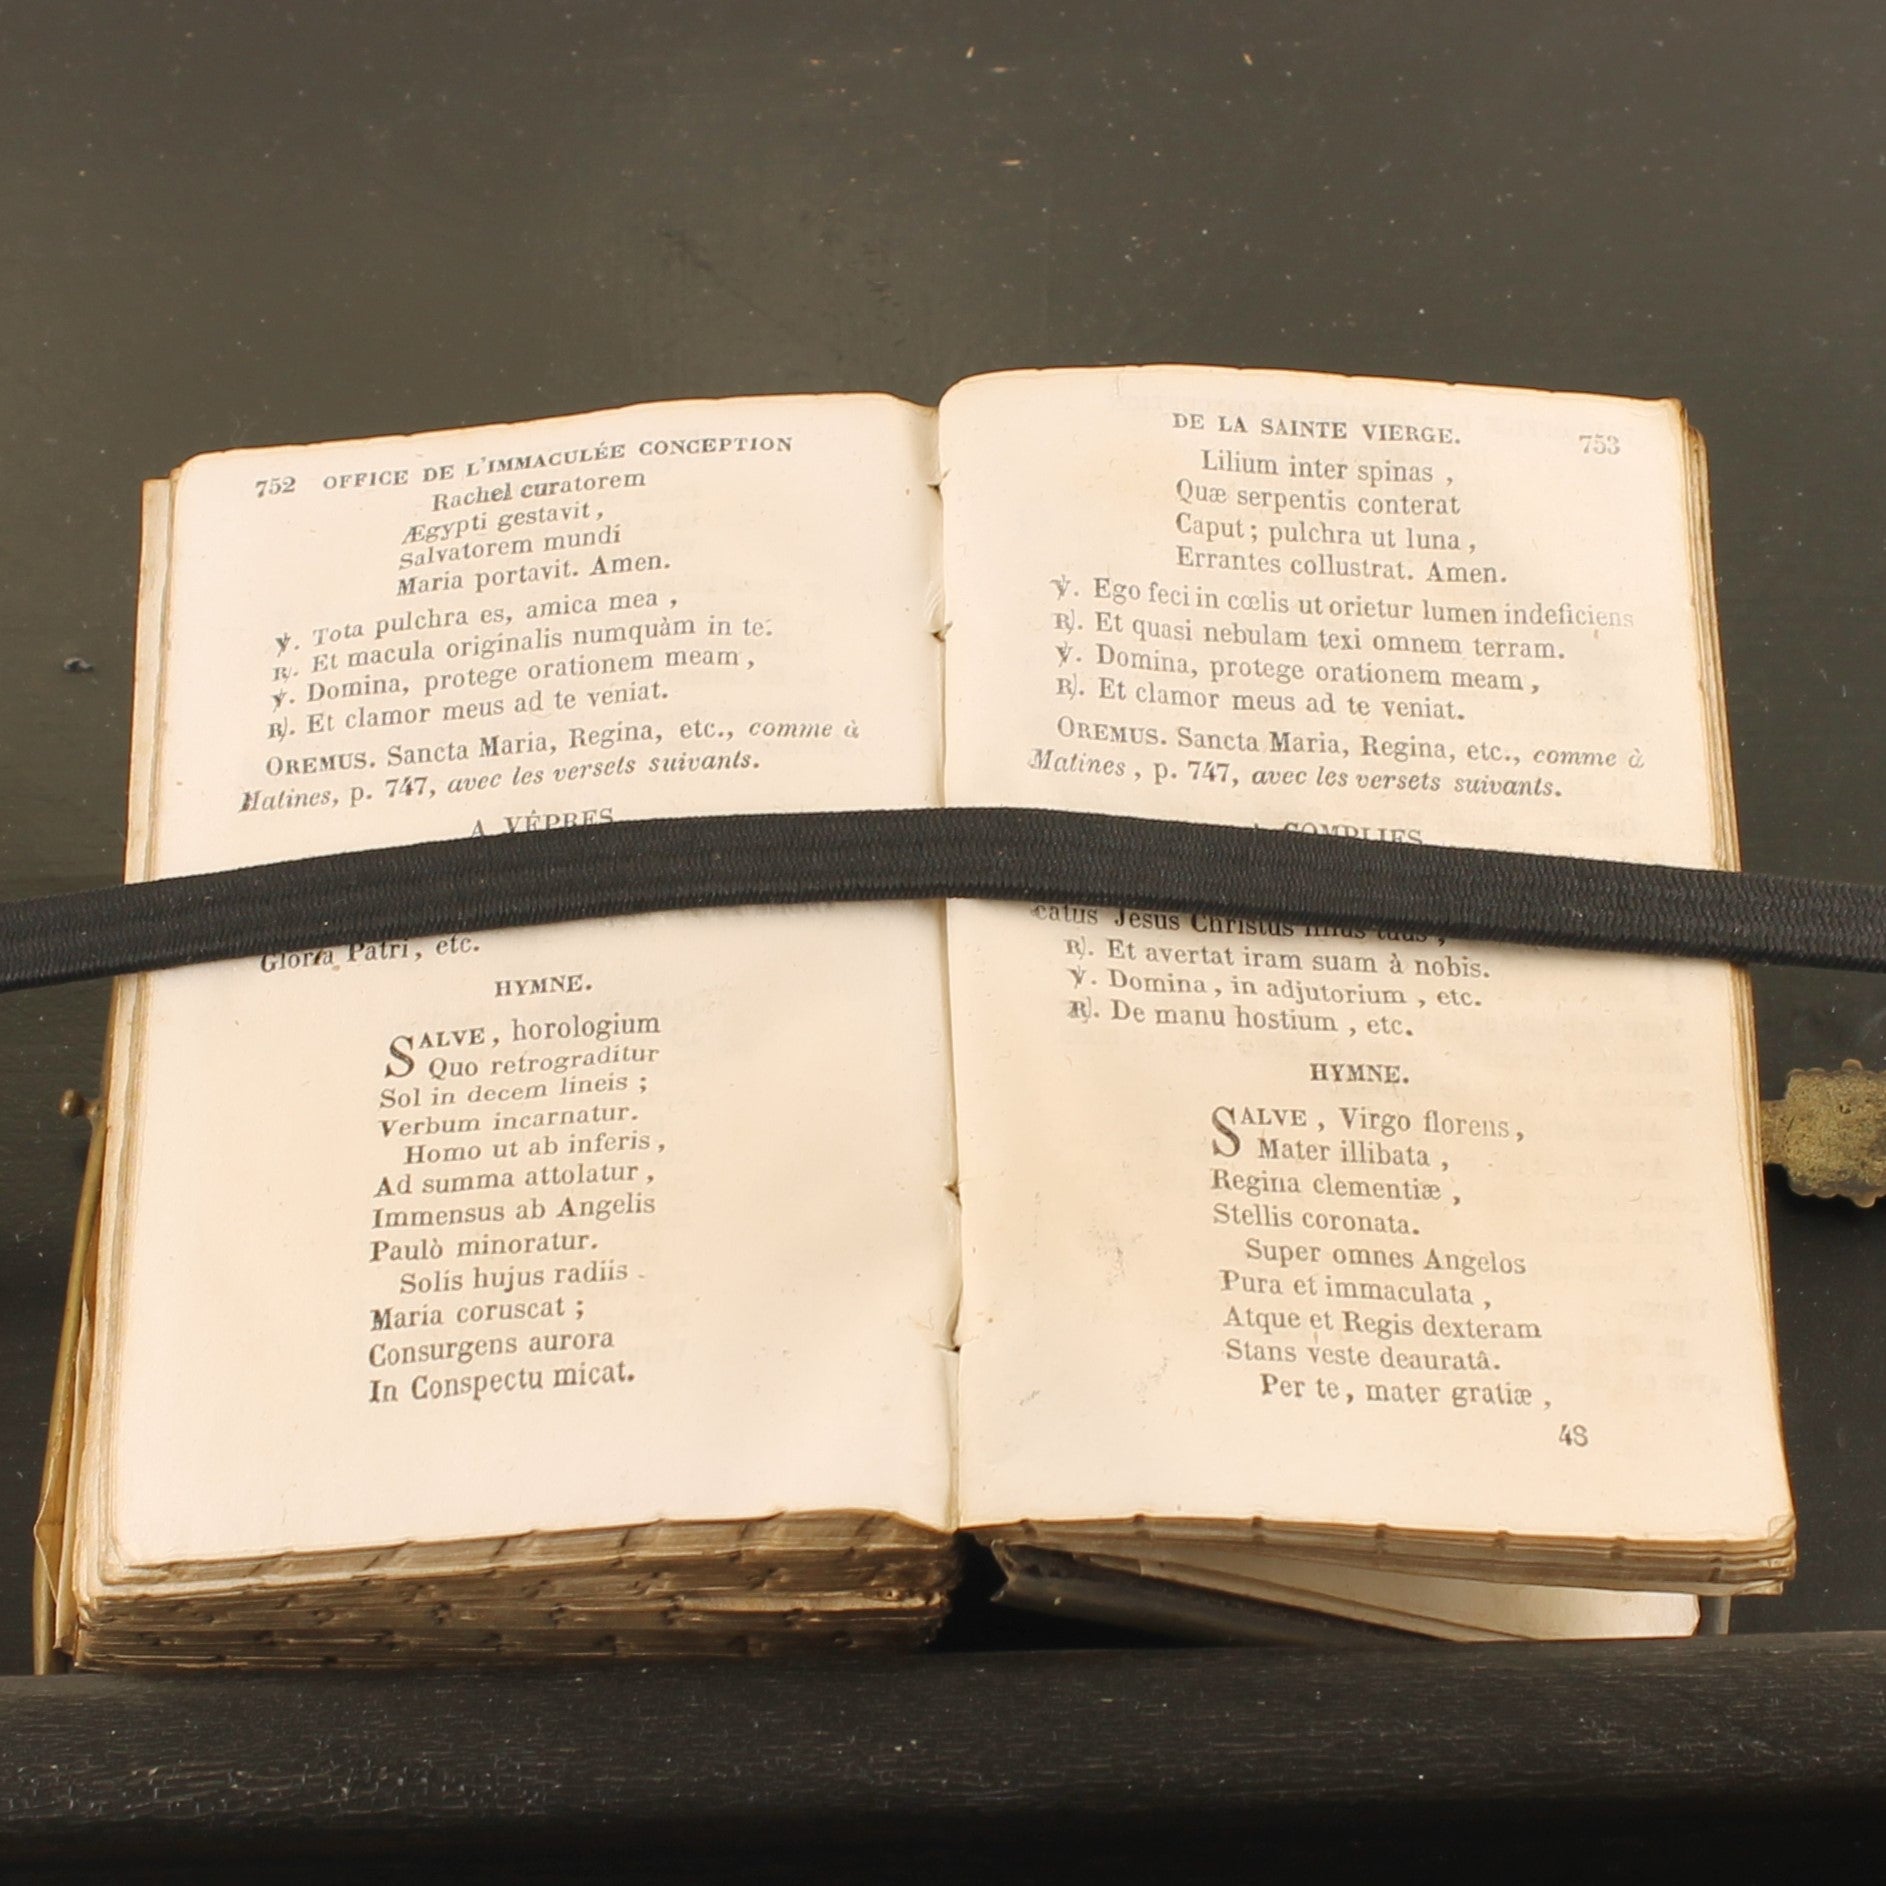 752 OFFICE DE L'IMMACULÉE CONCEPTION
Rachel curatorem
Ægypti gestavit,
Salvatorem mundi
Maria portavit. Amen.
℣. Tota pulchra es, amica mea,
℟. Et macula originalis numquàm in te.
℣. Domina, protege orationem meam,
℟. Et clamor meus ad te veniat.
OREMUS. Sancta Maria, Regina, etc., comme à
Matines, p. 747, avec les versets suivants.
A VÊPRES
Gloria Patri, etc.
HYMNE.
SALVE, horologium
Quo retrograditur
Sol in decem lineis;
Verbum incarnatur.
Homo ut ab inferis,
Ad summa attolatur,
Immensus ab Angelis
Paulò minoratur.
Solis hujus radiis
Maria coruscat;
Consurgens aurora
In Conspectu micat.
DE LA SAINTE VIERGE. 753
Lilium inter spinas,
Quæ serpentis conterat
Caput; pulchra ut luna,
Errantes collustrat. Amen.
℣. Ego feci in cœlis ut orietur lumen indeficiens
℟. Et quasi nebulam texi omnem terram.
℣. Domina, protege orationem meam,
℟. Et clamor meus ad te veniat.
OREMUS. Sancta Maria, Regina, etc., comme à
Matines, p. 747, avec les versets suivants.
A COMPLIES
catus Jesus Christus filius tuus,
℟. Et avertat iram suam à nobis.
℣. Domina, in adjutorium, etc.
℟. De manu hostium, etc.
HYMNE.
SALVE, Virgo florens,
Mater illibata,
Regina clementiæ,
Stellis coronata.
Super omnes Angelos
Pura et immaculata,
Atque et Regis dexteram
Stans veste deauratâ.
Per te, mater gratiæ,
48